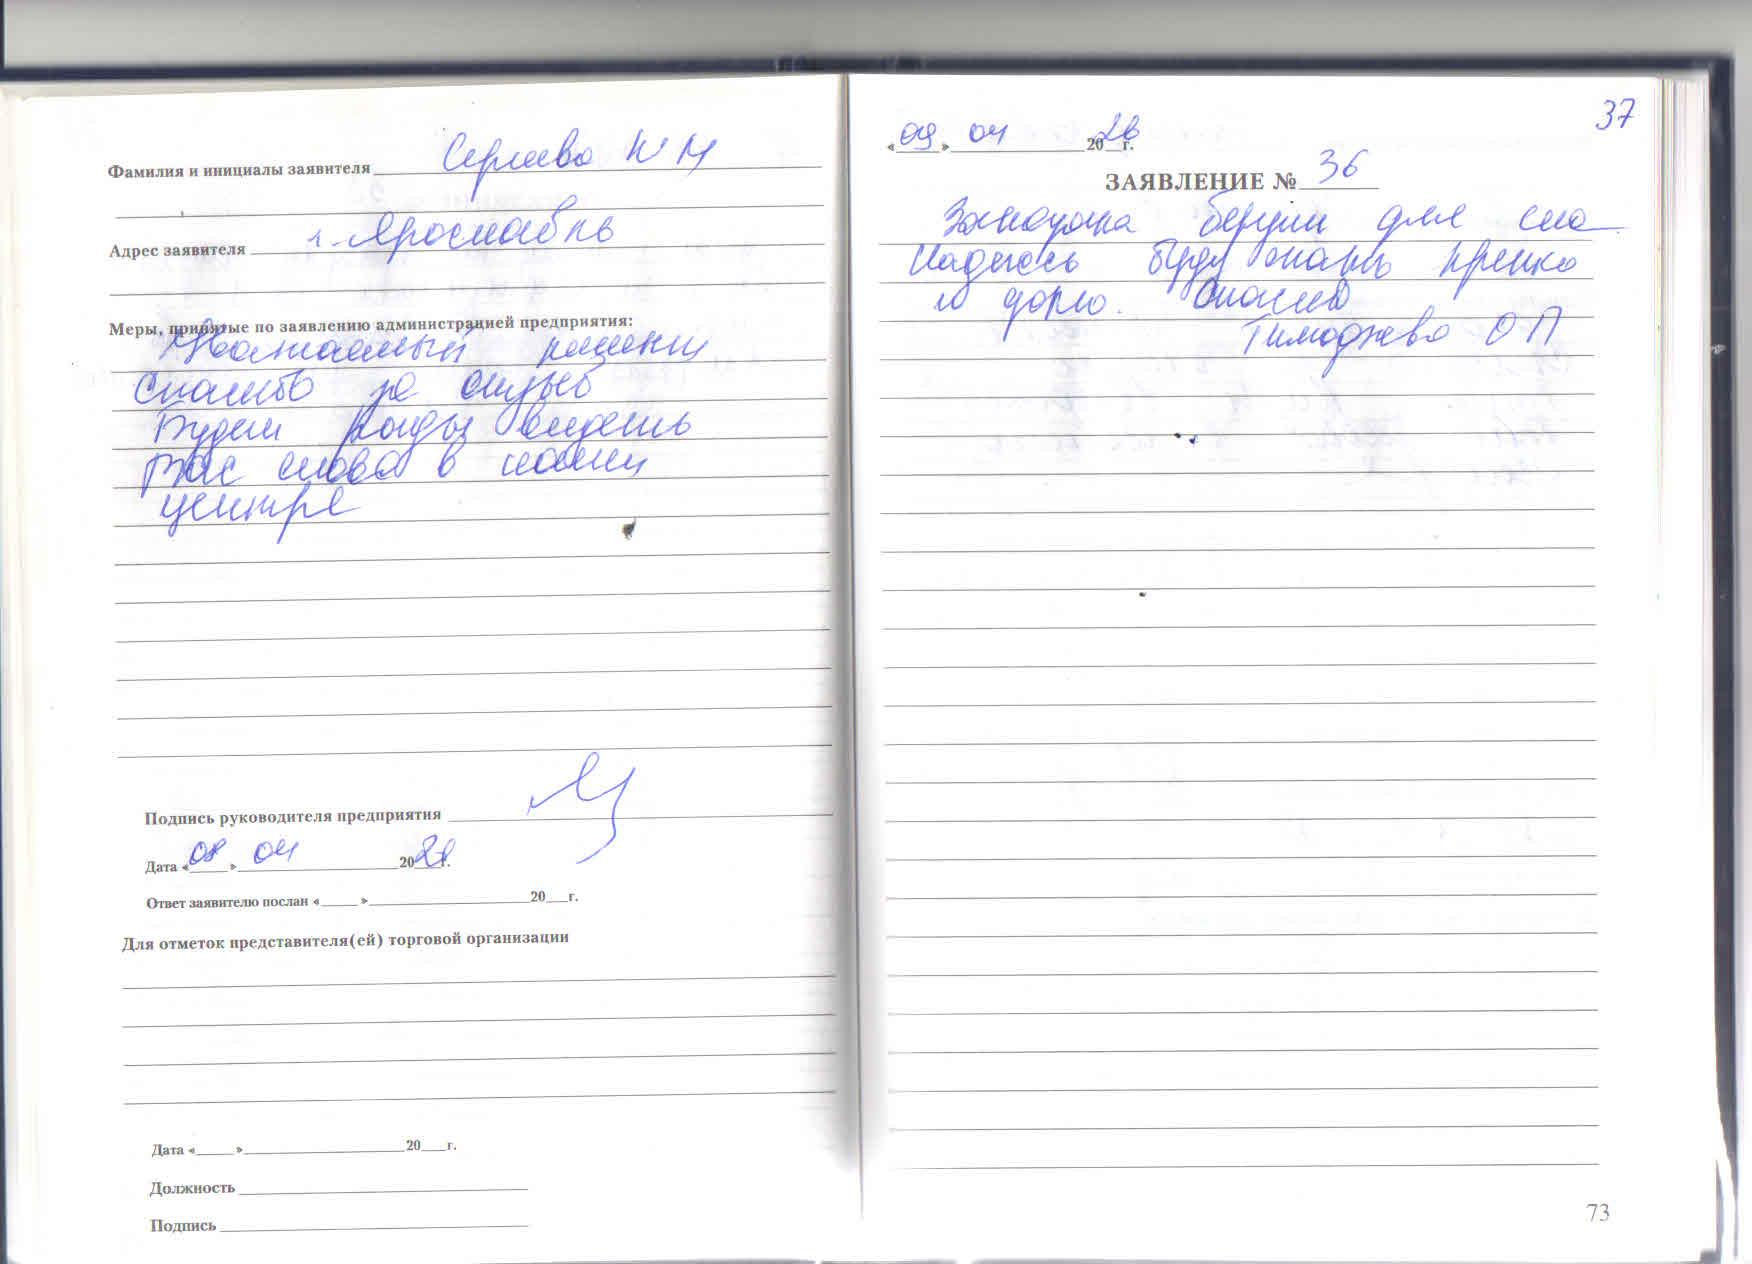 Фамилия и инициалы заявителя Сергеева Н М
Адрес заявителя г. Ярославль
Меры, принятые по заявлению администрацией предприятия:
Уважаемый
Спасибо за отзыв
Будем рады видеть
Вас снова в нашем
центре
Подпись руководителя предприятия
Дата «08» 04 20 г.
Ответ заявителю послан « » 20 г.
Для отметок представителя(ей) торговой организации
Дата « » 20 г.
Должность
Подпись
37
«09» 04 2026 г.
ЗАЯВЛЕНИЕ № 36
беруши для сна
Надеюсь буду спать крепко
и долго. Спасибо
О П
73